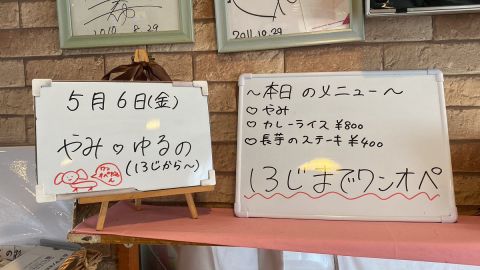 2010 8.29
2011.10.29
5月6日(金)
やみ♡ゆるの
(13じから〜)
〜本日のメニュー〜
♡やみ
♡カレーライス ¥800
♡長芋のステーキ ¥400
13じまでワンオペ